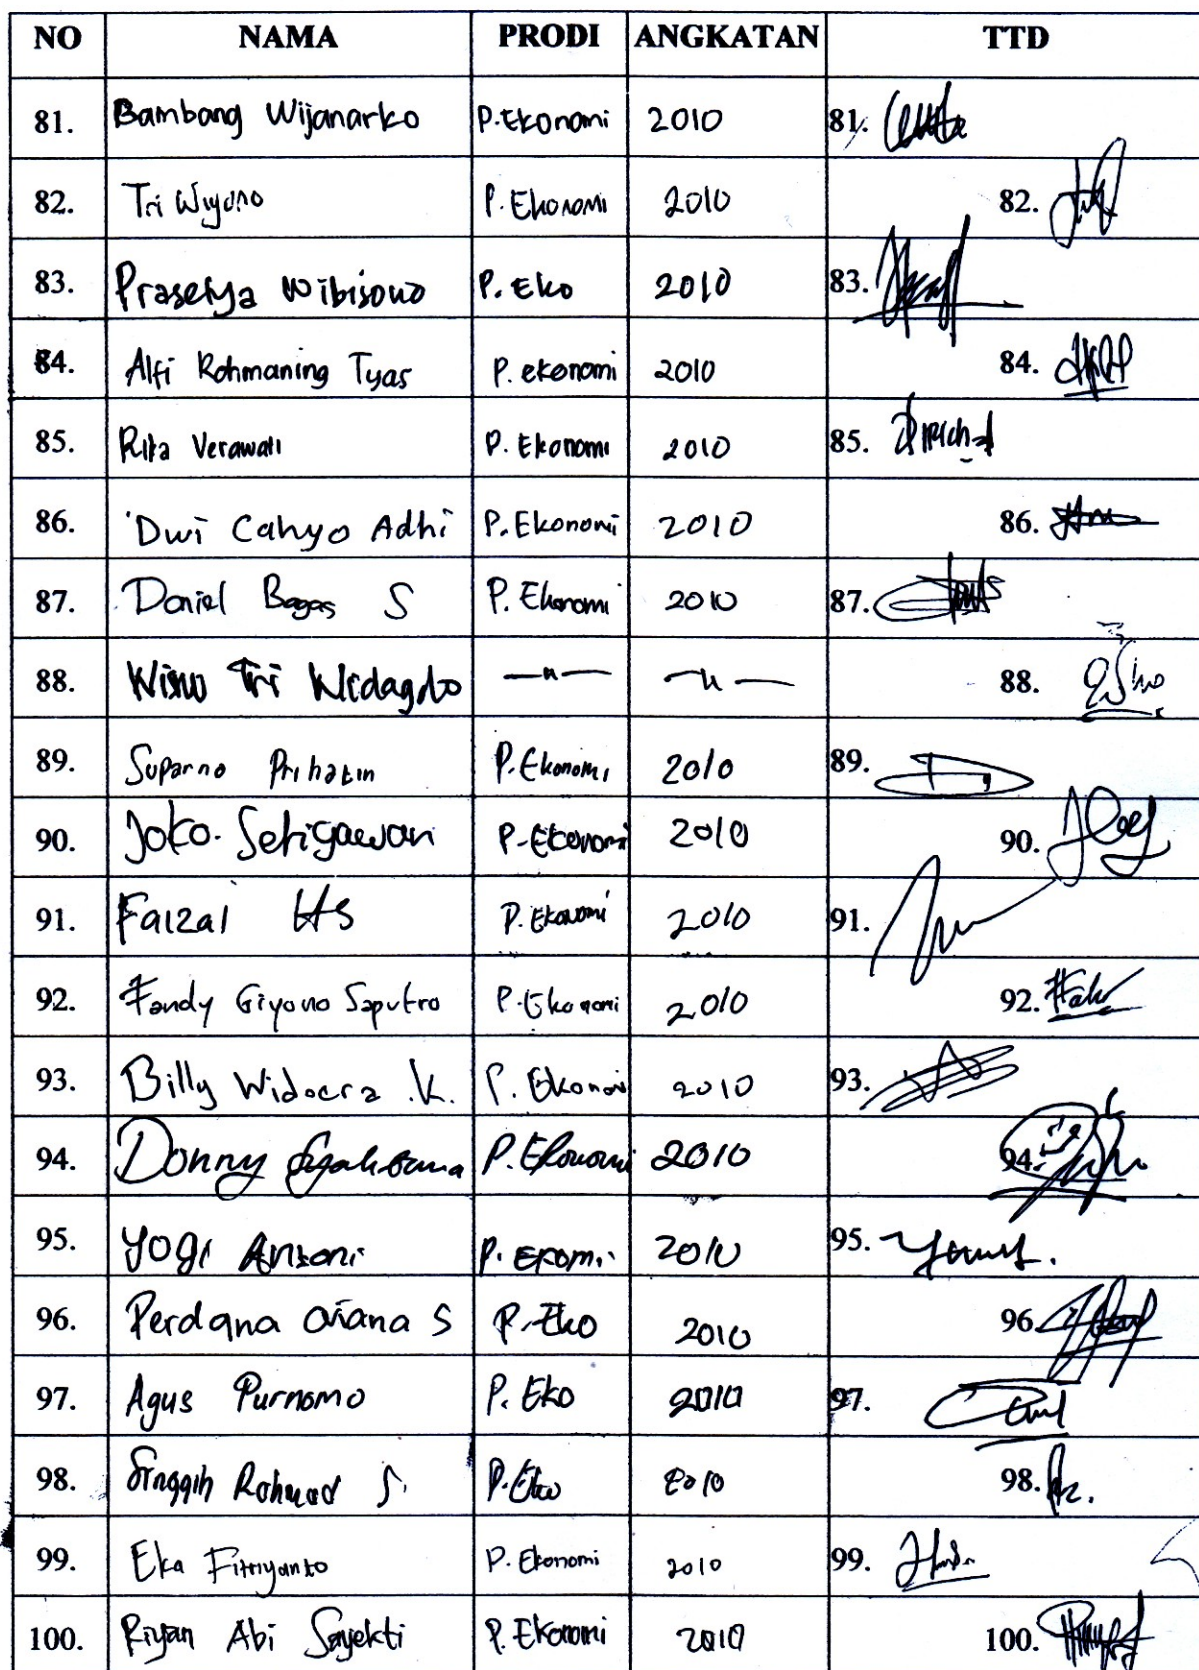 NO NAMA PRODI ANGKATAN TTD
81. Bambang Wijanarko P.Ekonomi 2010 81.
82. Tri Wiyono P.Ekonomi 2010 82.
83. Prasetya Wibisono P.Eko 2010 83.
84. Alfi Rohmaning Tyas P.ekonomi 2010 84.
85. Rita Verawati P.Ekonomi 2010 85.
86. Dwi Cahyo Adhi P.Ekonomi 2010 86.
87. Daniel Bagas S P.Ekonomi 2010 87.
88. Wisnu Tri Widagdo —"— —"— 88.
89. Suparno Prihatin P.Ekonomi 2010 89.
90. Joko Setiyawan P-Ekonomi 2010 90.
91. Faizal HS P.Ekonomi 2010 91.
92. Fandy Giyono Saputro P.Ekonomi 2010 92.
93. Billy K. P.Ekonomi 2010 93.
94. Donny P.Ekonomi 2010 94.
95. Yogi Antoni P. 2010 95.
96. Perdana S P.Eko 2010 96.
97. Agus Purnomo P.Eko 2010 97.
98. Singgih Rohmad S. P.Eko 2010 98.
99. Eka Fitriyanto P.Ekonomi 2010 99.
100. Riyan Abi Sayekti P.Ekonomi 2010 100.